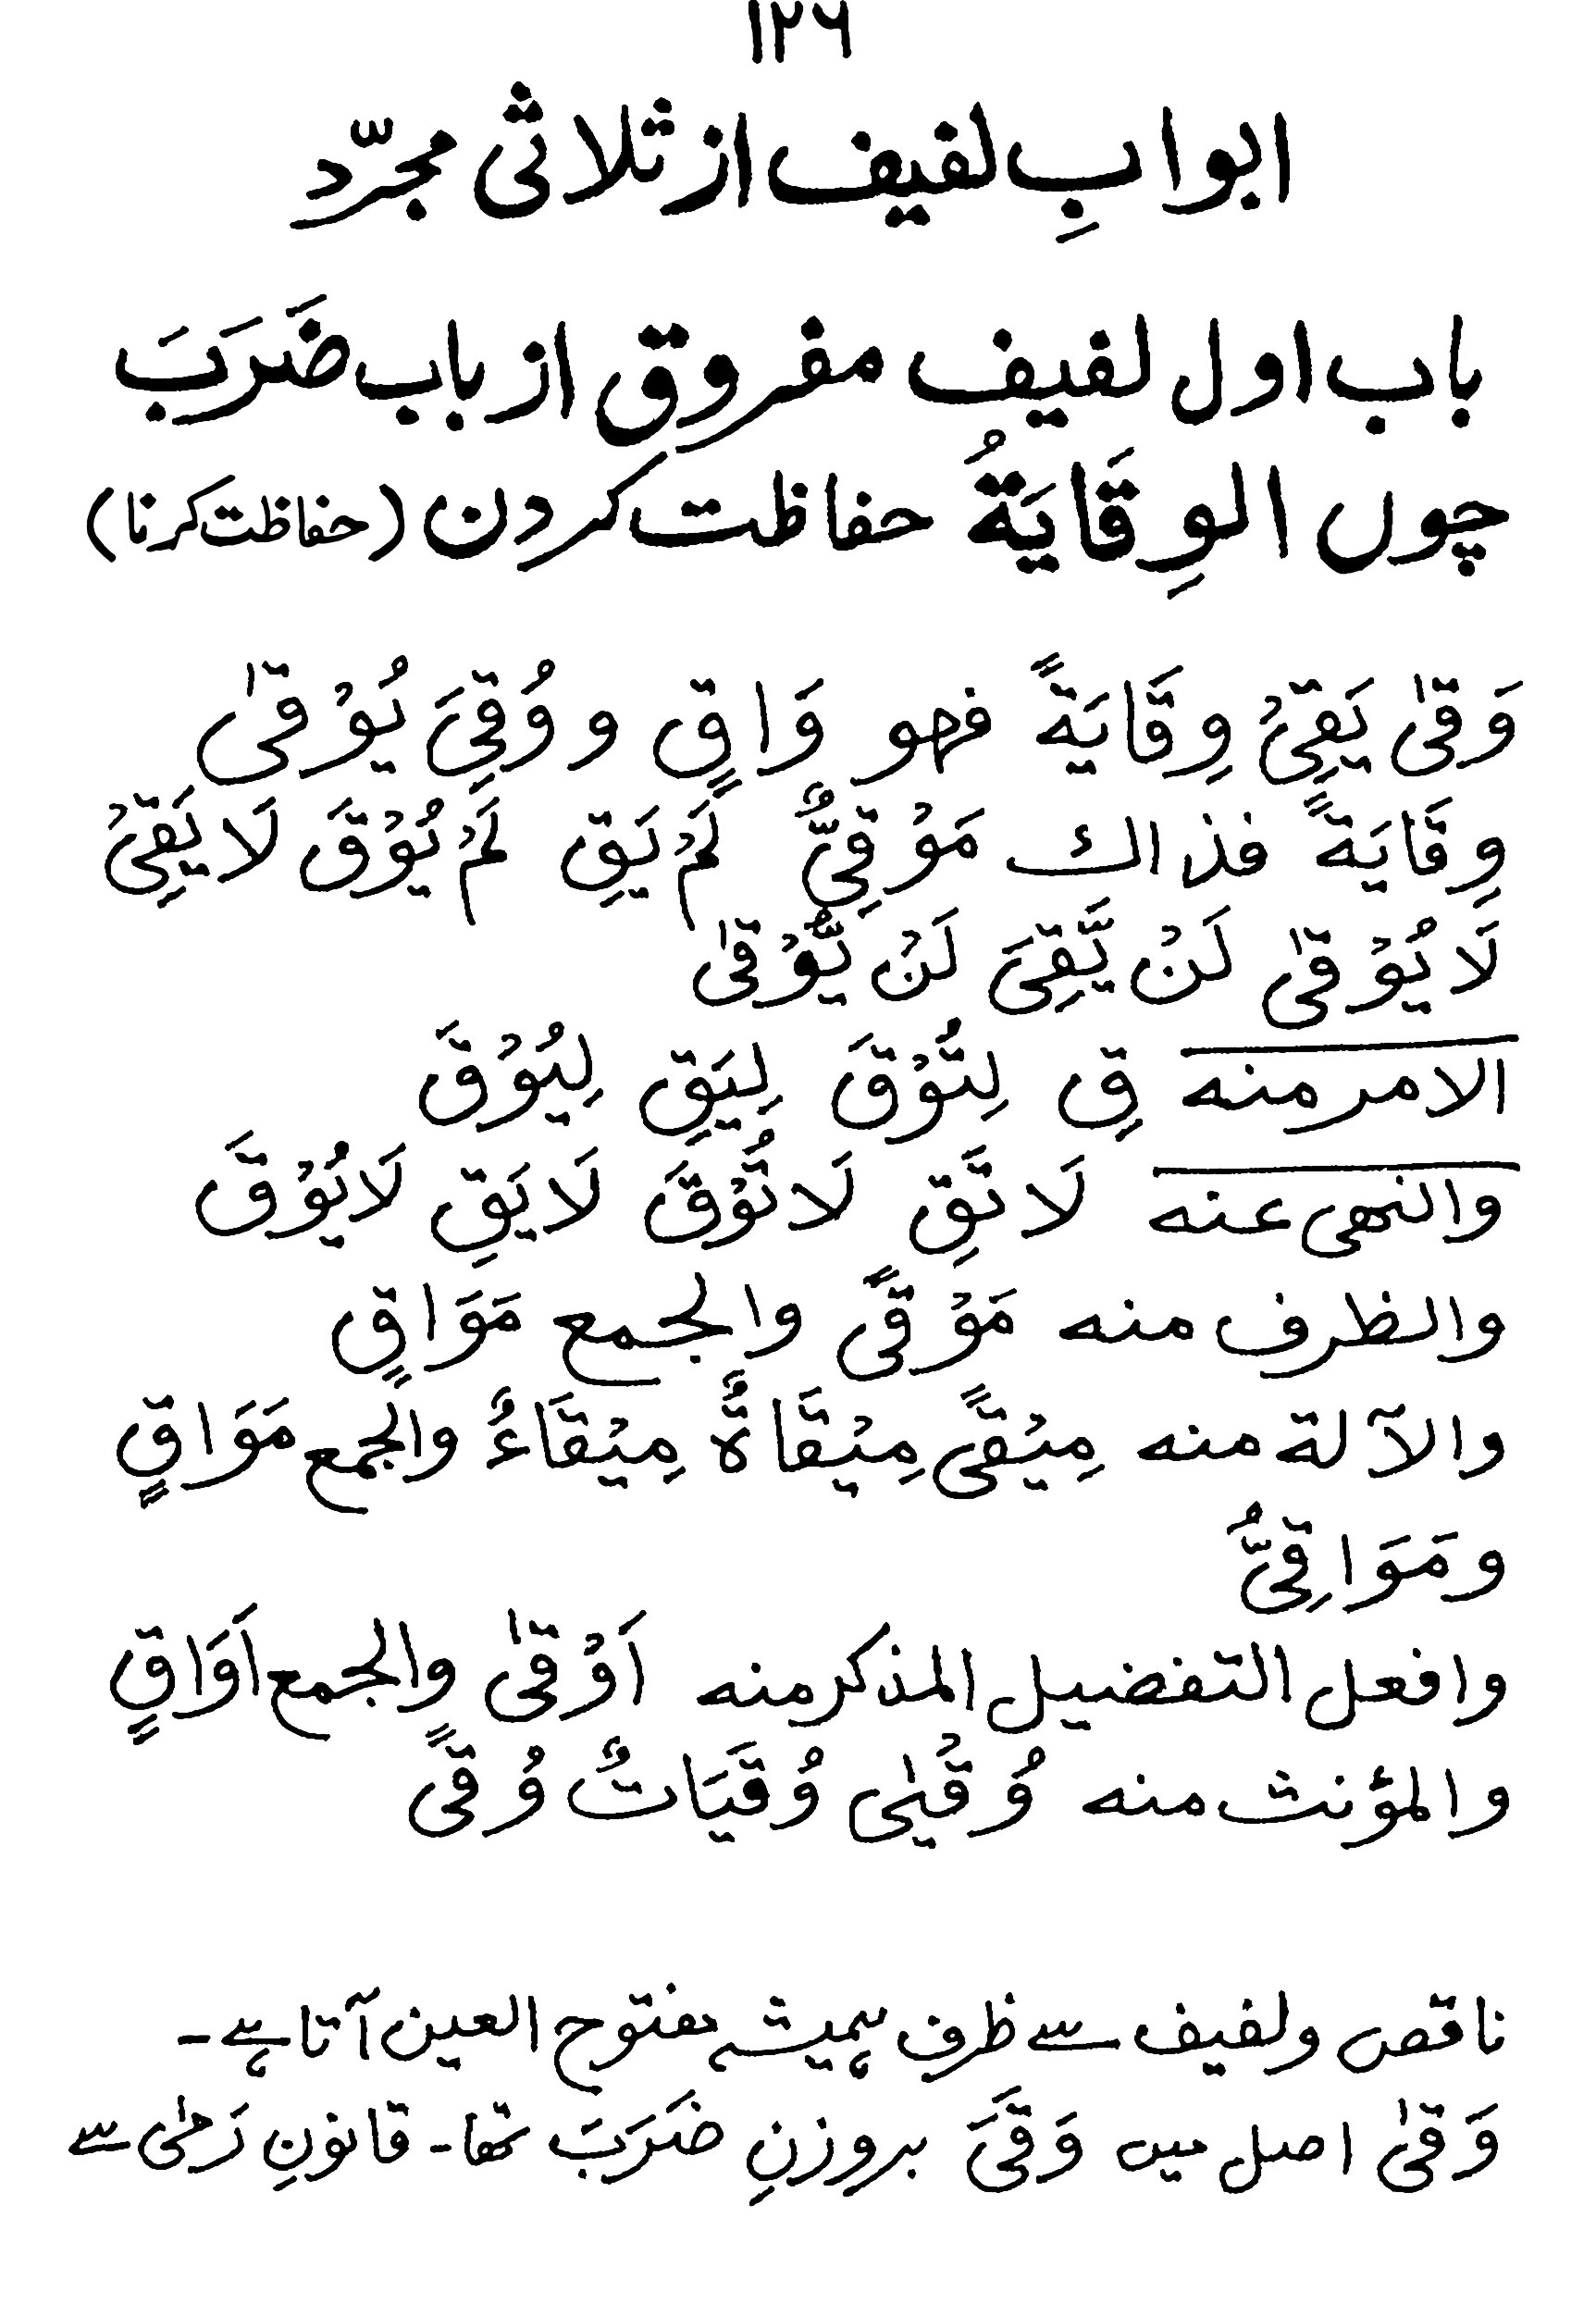 ١٢٦
ابوابِ لفیف از ثلاثی مجرّد
باب اول لفیف مفروق از باب ضَرَبَ
چوں الوِقَایَةُ حفاظت کردن (حفاظت کرنا)
وَقیٰ یَقِیْ وِقَایَةً فہو وَاقٍ و وُقِیَ یُوْقیٰ
وِقَایَةً فذاك مَوْقِیٌّ لَمْ یَقِ لَمْ یُوْقَ لَا یَقِیْ
لَا یُوْقیٰ لَنْ یَّقِیَ لَنْ یُّوْقیٰ
الامر منه قِ لِتُوْقَ لِیَقِ لِیُوْقَ
والنهی عنه لَا تَقِ لَا تُوْقَ لَا یَقِ لَا یُوْقَ
والظرف منه مَوْقًی والجمع مَوَاقٍ
والآلة منه مِیْقًی مِیْقَاةٌ مِیْقَاءٌ والجمع مَوَاقٍ
ومَوَاقِیُّ
وافعل التفضیل المذکر منه اَوْقیٰ والجمع اَوَاقٍ
والمؤنث منه وُقْیٰی وُقَیَاتٌ وُقًی
ناقص ولفیف سے ظرف ہمیشہ مفتوح العین آتا ہے۔
وَقیٰ اصل میں وَقَیَ بروزنِ ضَرَبَ تھا۔ قانونِ رَمیٰ سے